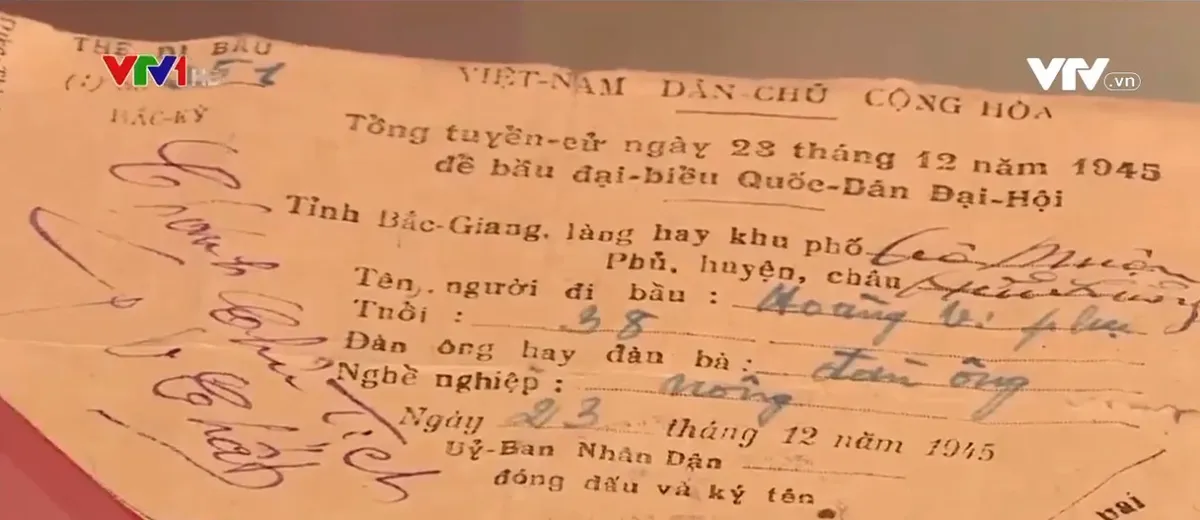 THẺ ĐI BẦU
VTV1 HD
51
VTV.vn
BẮC-KỲ
VIỆT-NAM DÂN-CHỦ CỘNG HÒA
Tổng tuyển-cử ngày 23 tháng 12 năm 1945
để bầu đại-biểu Quốc-Dân Đại-Hội
Tỉnh Bắc-Giang, làng hay khu phố
Phủ, huyện, châu
Tên, người đi bầu : Hoàng
Tuổi : 38
Đàn ông hay đàn bà : đàn ông
Nghề nghiệp : nông
Ngày 23 tháng 12 năm 1945
Uỷ-Ban Nhân Dân
đóng dấu và ký tên
Chủ Tịch